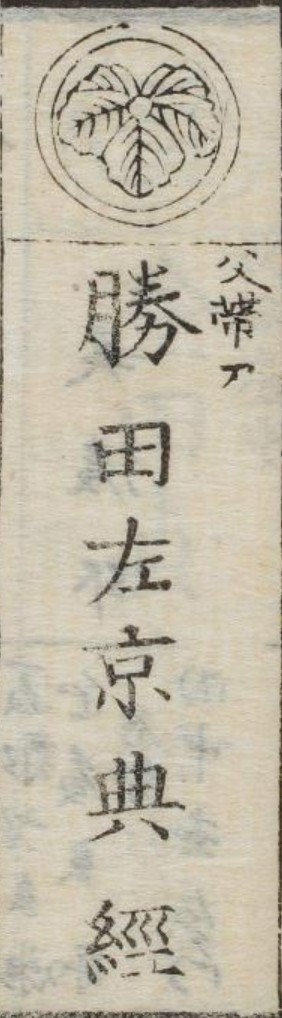 父帯刀
勝田左京典經